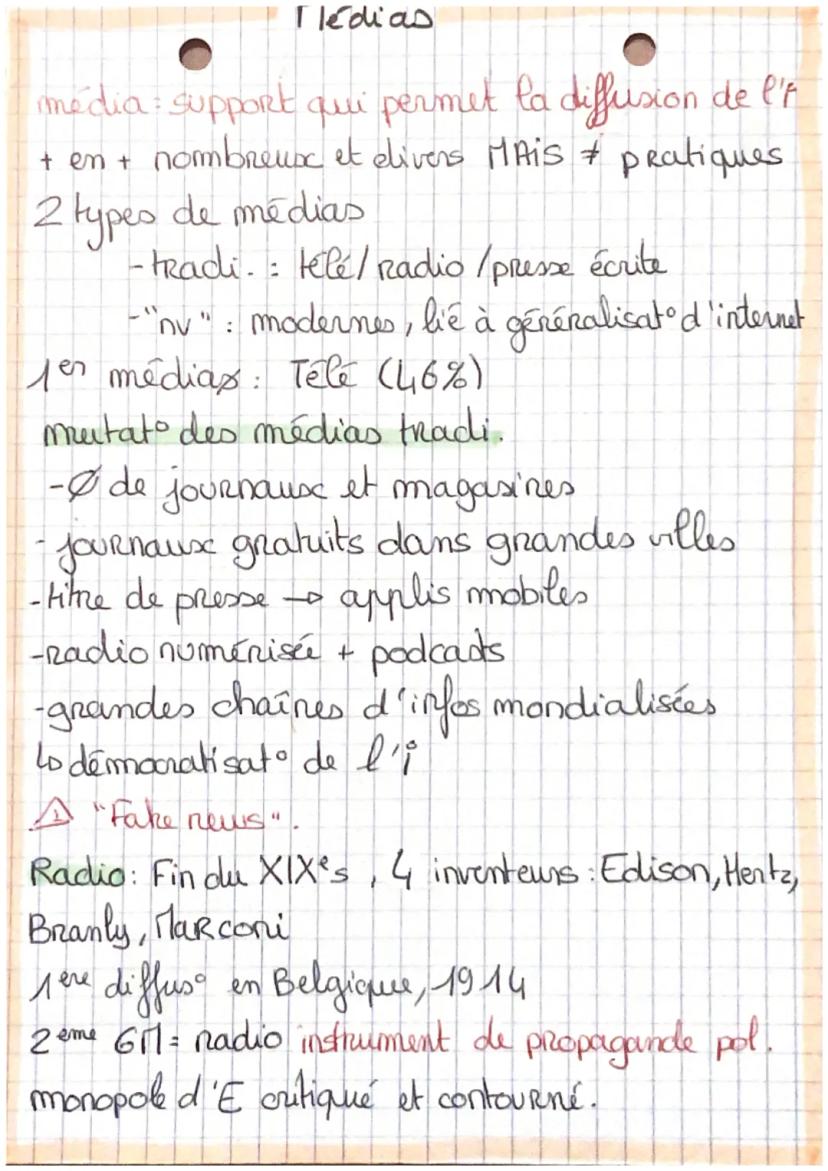 Médias
média = support qui permet la diffusion de l'i
+ en + nombreux et divers MAIS ≠ pratiques
2 types de médias
- tradi. : télé / radio / presse écrite
- "nv" : modernes, lié à généralisat° d'internet
1er médias : Télé (46%)
mutat° des médias tradi.
- Ø de journaux et magasines
- journaux gratuits dans grandes villes
- titre de presse → applis mobiles
- radio numérisée + podcasts
- grandes chaînes d'infos mondialisées
↳ démocratisat° de l'i
⚠ "Fake news".
Radio : Fin du XIXes, 4 inventeurs : Edison, Hertz,
Branly, Marconi
1ère diffus° en Belgique, 1914
2ème GM = radio instrument de propagande pol.
monopole d'E critiqué et contourné.